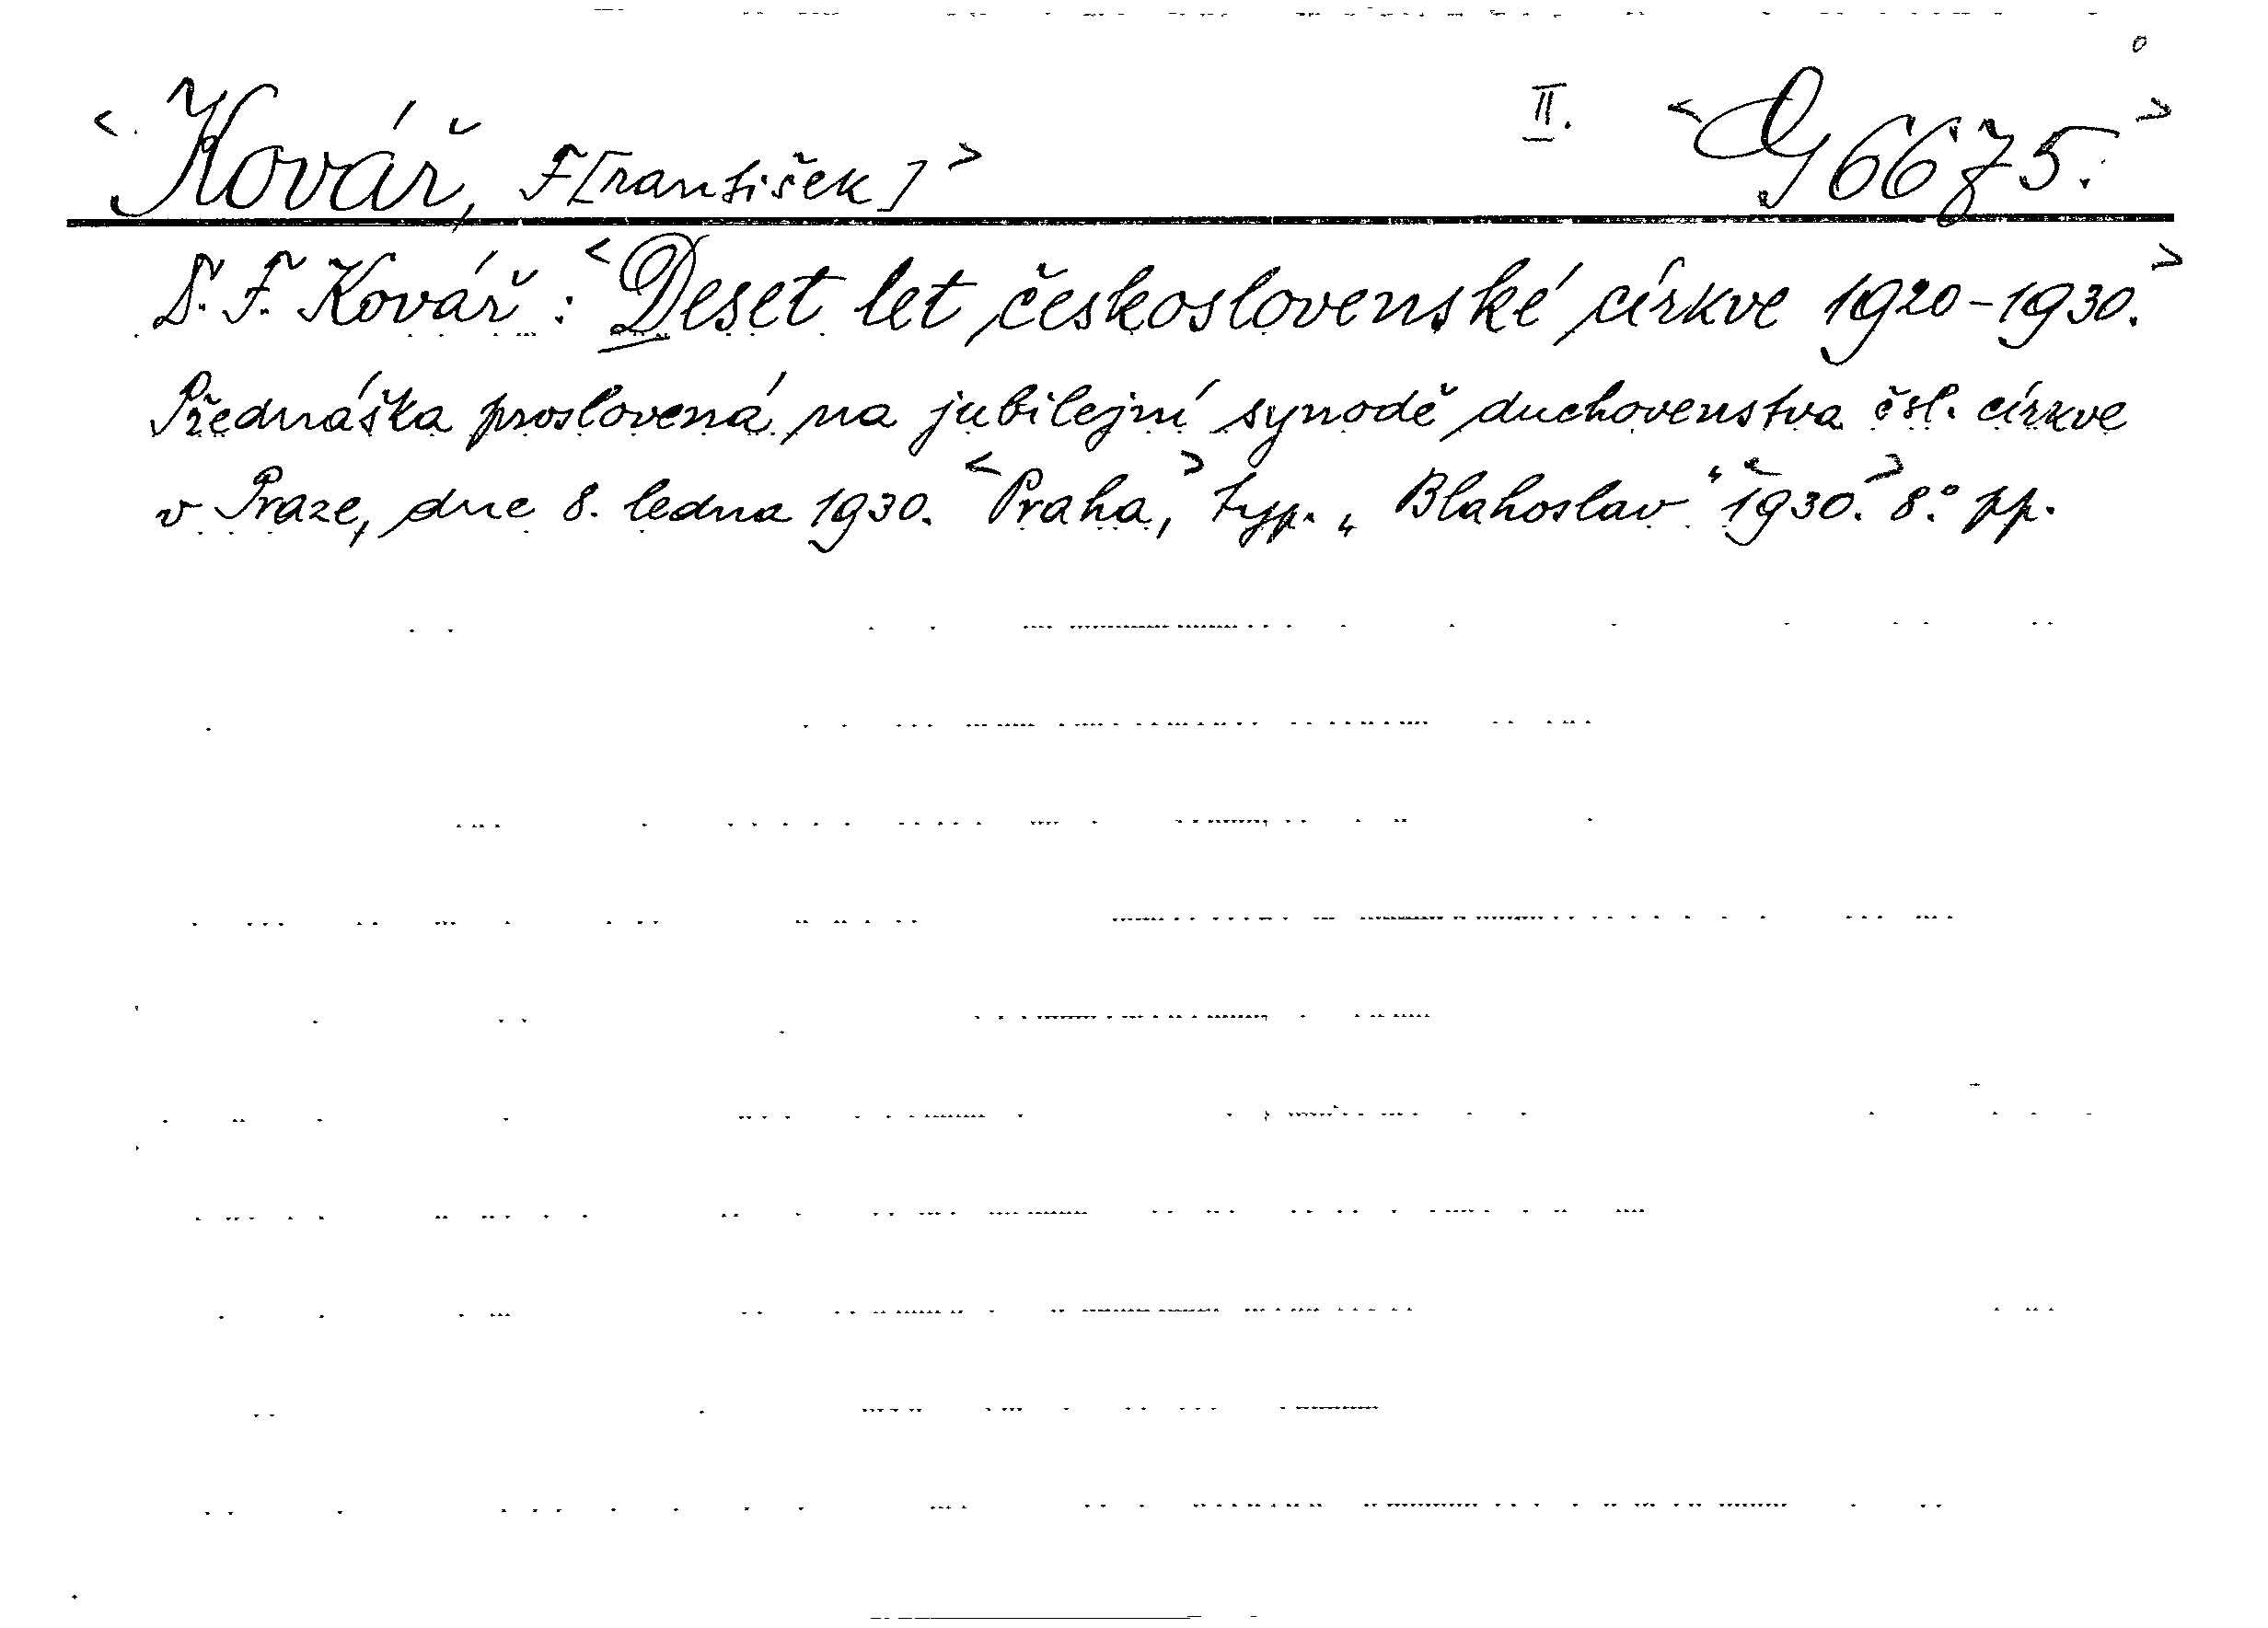 <Kovář, F[rantišek]> II. <G 6675.>
D. F. Kovář: <Deset let československé církve 1920-1930.>
Přednáška proslovená na jubilejní synodě duchovenstva čsl. církve
v Praze, dne 8. ledna 1930. <Praha,> typ. „Blahoslav“ <1930.> 8.° pp.